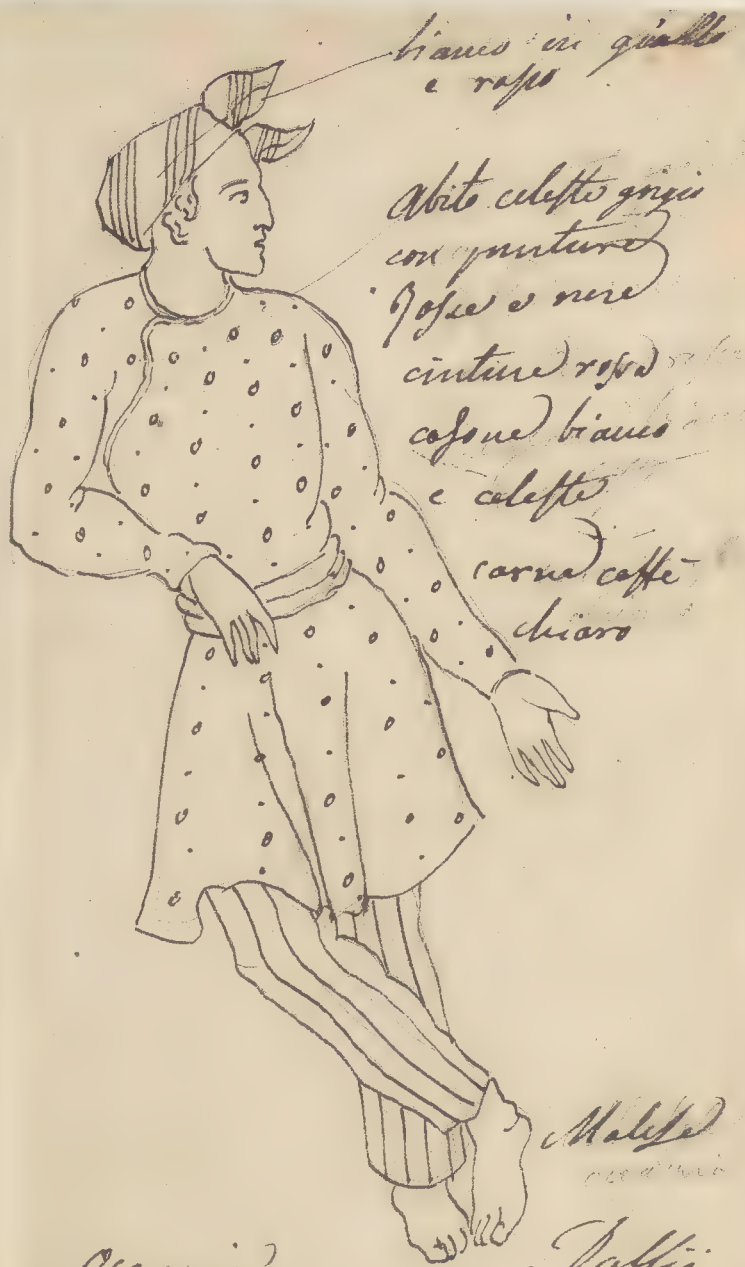 bianco in giallo
e rosso
Abito celeste grigio
con punture
Rosse e nere
cinture rossa
casone bianco
e celeste
carne caffè
chiaro
Malese